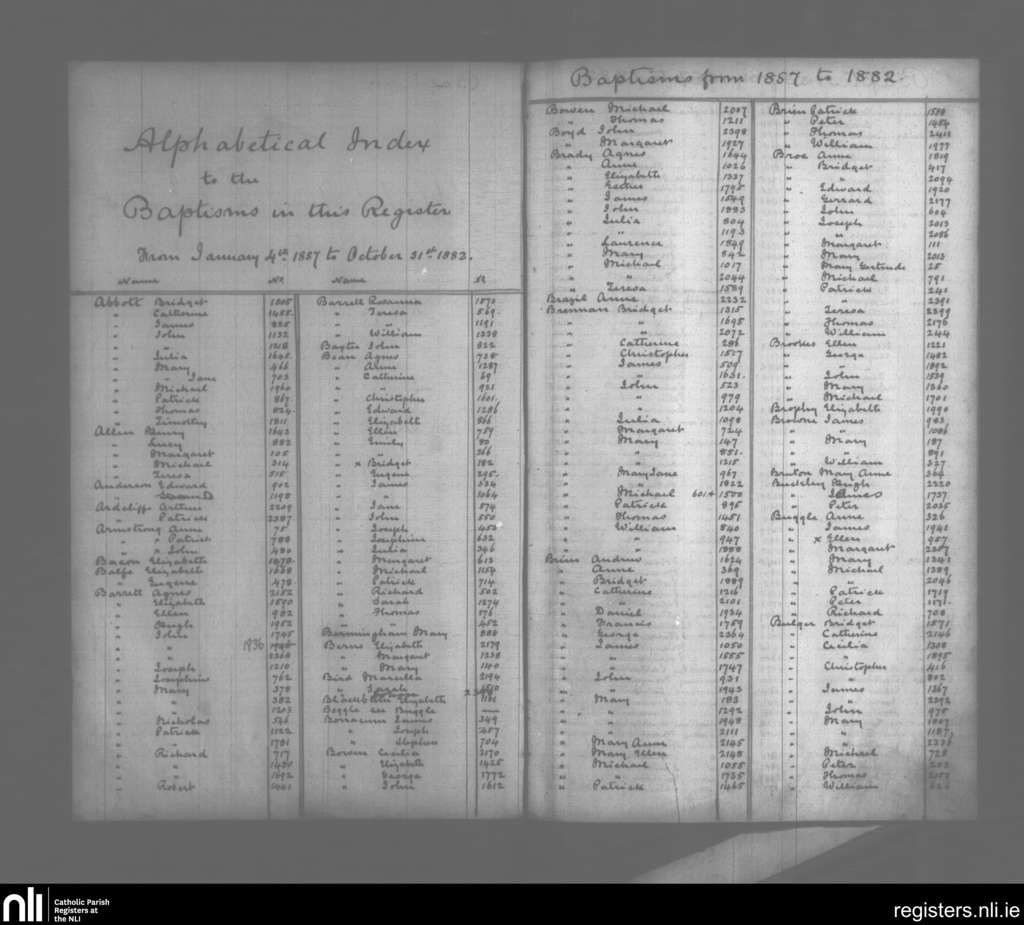 Alphabetical Index
to the
Baptisms in this Register
From January 4th 1857 to October 31st 1882.
Name No. Name No
Abbott Bridget 1805
" Catherine 1455
" James 825
" John 1132
" " 1218
" Julia 1645
" Mary 466
" " Jane 703
" Michael 1960
" Patrick 867
" Thomas 824
" Timothy 1811
Allen Henry 1643
" Lucy 882
" Margaret 105
" Michael 314
" Teresa 515
Anderson Edward 902
" 1198
Ardcliffe Arthur 2209
" Patrick 2387
Armstrong Anne 75
" x Patrick 788
" x John 480
Bacon Elizabeth 1878
Balfe Elizabeth 1668
" Eugene 478
Barrett Agnes 2152
" Elizabeth 1590
" Ellen 982
" Hugh 1952
" John 1745
" " 1936
" " 2360
" Joseph 1210
" Josephine 762
" Mary 378
" " 382
" " 1203
" Nicholas 546
" Patrick 1122
" " 1781
" Richard 717
" " 1430
" " 1692
" Robert 1441
Barrett Rosanna 1873
" Teresa 569
" " 1191
" William 1338
Baxter John 822
Bean Agnes 738
" Anne 1287
" Catherine 69
" " 921
" Christopher 1601
" Edward 1286
" Elizabeth 866
" Ellen 759
" Emily 80
" " 366
" x Bridget 182
" Eugene 295
" James 334
" " 1064
" Jane 574
" John 550
" Joseph 453
" Josephine 632
" Julia 346
" Margaret 613
" Michael 1154
" Patrick 714
" Richard 502
" Sarah 1274
" Thomas 176
" " 452
Bermingham Mary 886
Berns Elizabeth 2179
" Margaret 1238
" Mary 1140
Bird Marcella 2194
" Sarah
Blackburn Elizabeth 1181
Boggle see Buggle —
Borracum James 349
" Joseph 457
" Stephen 704
Bowen Cecilia 2170
" Elizabeth 1425
" George 1772
" John 1612
Baptisms from 1857 to 1882
Bowen Michael 2007
" Thomas 1211
Boyd John 2398
" Margaret 1927
Brady Agnes 1644
" Anne 1026
" Elizabeth 1337
" Esther 1795
" James 1549
" John 1883
" Julia 804
" " 1193
" Laurence 1849
" Mary 842
" Michael 1017
" " 2044
" Teresa 1589
Brazil Anne 2232
Brennan Bridget 1315
" " 1695
" " 2072
" Catherine 286
" Christopher 1527
" James 509
" " 1631
" John 523
" " 979
" " 1204
" Julia 1098
" Margaret 724
" Mary 147
" " 851
" " 1215
" Mary Jane 967
" " 1822
" Michael 601 & 1500
" Patrick 895
" Thomas 1451
" William 840
" " 947
" " 1888
Brien Andrew 1624
" Anne 369
" Bridget 1889
" Catherine 1216
" " 2101
" Daniel 1934
" Francis 1759
" George 2364
" James 1050
" " 1555
" " 1747
" John 931
" " 1943
" Mary 183
" " 1292
" " 1948
" " 2111
" Mary Anne 2145
" Mary Ellen 2148
" Michael 1055
" " 1735
" Patrick 1465
Brien Patrick 1588
" Peter 1484
" Thomas 2411
" William 1977
Broe Anne 1819
" Bridget 417
" " 2094
" Edward 1920
" Gerrard 2177
" John 604
" Joseph 2013
" " 2086
" Margaret 111
" Mary 2013
" Mary Gertrude 25
" Michael 791
" Patrick 241
" " 2391
" Teresa 2399
" Thomas 2176
" William 244
Brookes Ellen 1221
" George 1482
" " 1892
" John 1529
" Mary 1360
" Michael 1701
Brophy Elizabeth 1990
Browne James 983
" " 1086
" Mary 187
" " 891
" William 327
Bruton Mary Anne 364
Buckley Hugh 2320
" James 1737
" Peter 2025
Buggle Anne 326
" James 1941
" x Ellen 957
" Margaret 2357
" Mary 1341
" Michael 1389
" " 2046
" Patrick 1719
" Peter 1171
" Richard 708
Bulger Bridget 1571
" Catherine 2146
" Cecilia 1308
" " 1895
" Christopher 416
" " 802
" James 1367
" " 2292
" John 975
" Mary 1007
" " 1187
" " 2236
" Michael 728
" Peter
" Thomas
" William
nli
Catholic Parish
Registers at
the NLI
registers.nli.ie